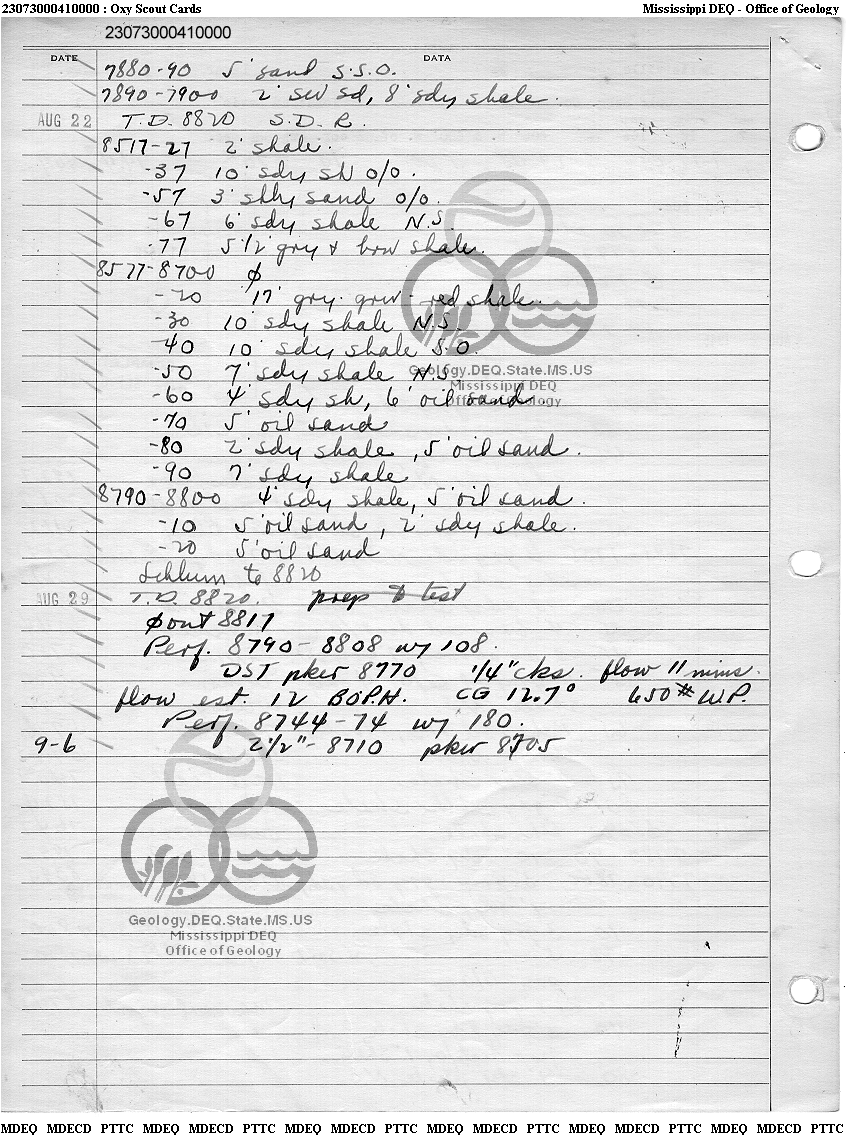 23073000410000 : Oxy Scout Cards Mississippi DEQ - Office of Geology
23073000410000
DATE DATA
7880-90 5' sand S.S.O.
7890-7900 2' SW sd, 8' sdy shale.
AUG 22 T.D. 8820 S.D.R.
8517-27 2' shale.
-37 10' sdy sh o/o.
-57 3' shly sand o/o.
-67 6' sdy shale N.S.
-77 5 1/2' gry & brw shale.
8577-8700 ϕ
-20 17' gry. grw - red shale.
-30 10' sdy shale N.S.
-40 10' sdy shale S.O.
-50 7' sdy shale N.S.
-60 4' sdy sh, 6' oil sand
-70 5' oil sand
-80 2' sdy shale, 5' oil sand.
-90 7' sdy shale
8790-8800 4' sdy shale, 5' oil sand.
-10 5' oil sand, 2' sdy shale.
-20 5' oil sand
Schlum to 8820
AUG 29 T.D. 8820. prep to test
ϕ out 8817
Perf. 8790-8808 w/ 108.
DST pker 8770 1/4" cks. flow 11 mins.
flow est. 12 B.O.P.H. CG 12.7° 650# W.P.
Perf. 8744-74 w/ 180.
9-6 2 1/2"-8710 pker 8705
Geology.DEQ.State.MS.US
Mississippi DEQ
Office of Geology
Geology.DEQ.State.MS.US
Mississippi DEQ
Office of Geology
MDEQ MDECD PTTC MDEQ MDECD PTTC MDEQ MDECD PTTC MDEQ MDECD PTTC MDEQ MDECD PTTC MDEQ MDECD PTTC